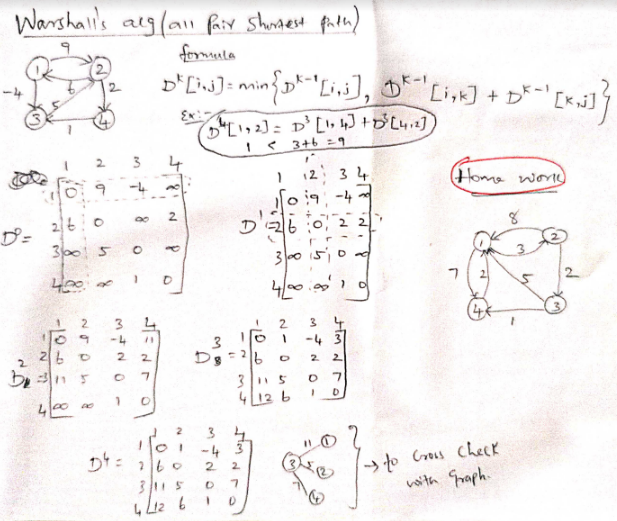 Warshall's alg (all pair shortest path)
9
1 2
-4 6 2
5
3 4
1
formula
D^k[i,j] = min{D^k-1[i,j], D^k-1[i,k] + D^k-1[k,j]}
Ex:-
D^4[1,2] = D^3[1,4] + D^3[4,2]
1 < 3+6 = 9
D^0 =
1 2 3 4
1 0 9 -4 ∞
2 6 0 ∞ 2
3 ∞ 5 0 ∞
4 ∞ ∞ 1 0
D^1 =
1 2 3 4
1 0 9 -4 ∞
2 6 0 2 2
3 ∞ 5 0 ∞
4 ∞ ∞ 1 0
Home work
8
1 2
3
7 2 5 2
4 3
1
D^2 =
1 2 3 4
1 0 9 -4 11
2 6 0 2 2
3 11 5 0 7
4 ∞ ∞ 1 0
D^3 =
1 2 3 4
1 0 1 -4 3
2 6 0 2 2
3 11 5 0 7
4 12 6 1 0
D^4 =
1 2 3 4
1 0 1 -4 3
2 6 0 2 2
3 11 5 0 7
4 12 6 1 0
11 1
3 5 2
7 4
→ to cross check
with graph.